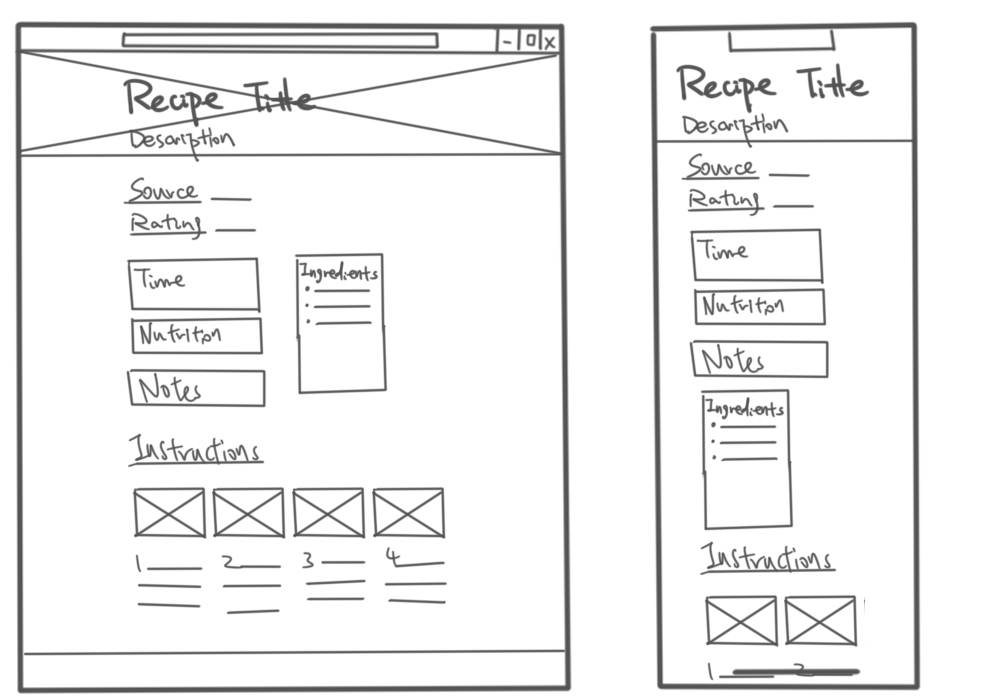 Recipe Title
Description
Source
Rating
Time
Nutrition
Notes
Ingredients
Instructions
1
2
3
4
Recipe Title
Description
Source
Rating
Time
Nutrition
Notes
Ingredients
Instructions
1
2